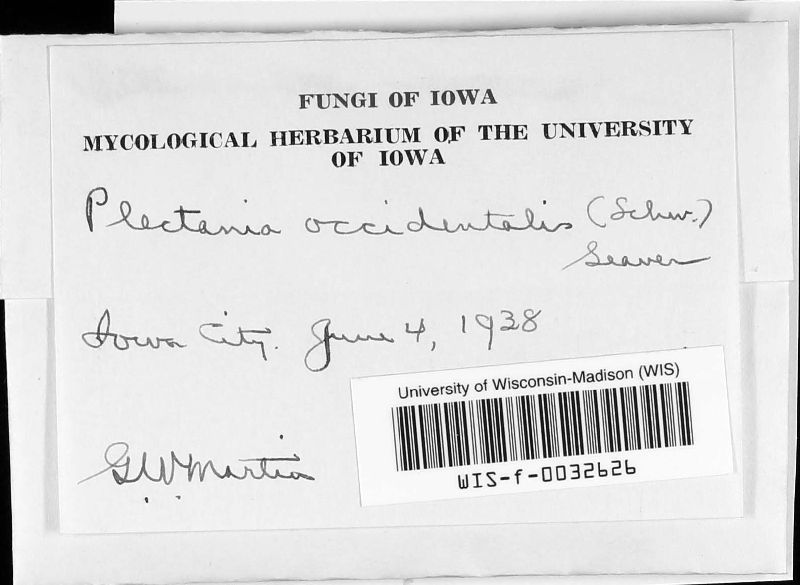 FUNGI OF IOWA
MYCOLOGICAL HERBARIUM OF THE UNIVERSITY
OF IOWA
Plectania occidentalis (Schw.)
Seaver
Iowa City. June 4, 1938
G W Martin
University of Wisconsin-Madison (WIS)
WIS-f-0032626